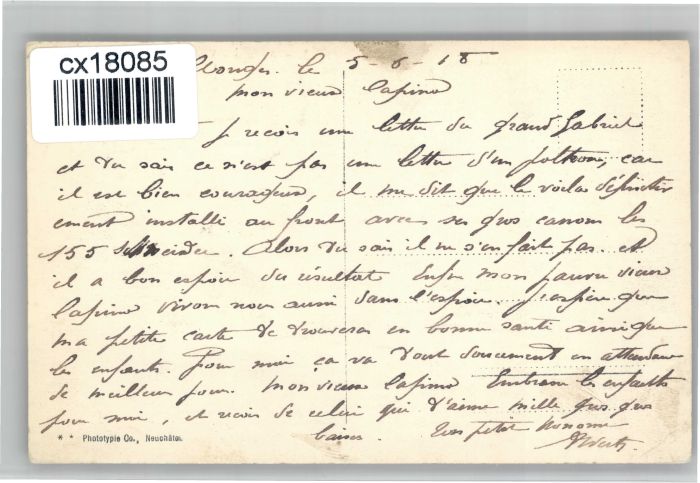 cx18085
le 5-6-18
mon vieux lapino
Je recois une lettre du grand Gabriel
et tu sais ce n'est pas une lettre d'un poltrons, car
il est bien courageux, il me dit que le voila définitiv
ement installé au front avec ses gros canons les
155 Alors tu sais il ne s'en fait pas. et
il a bon espoir du résultat Enfin mon pauvre vieux
lapino vivons nous aussi dans l'espoir. J'espère que
ma petite carte te trouveras en bonne santé ainsi que
les enfants. Pour moi ça va tout doucement en attendant
de meilleur jour. Mon vieux lapino Embrasse les enfants
pour moi, et recois de celui qui t'aime mille gros gros
baisers. Ton petit Nonome
** Phototypie Co., Neuchâtel